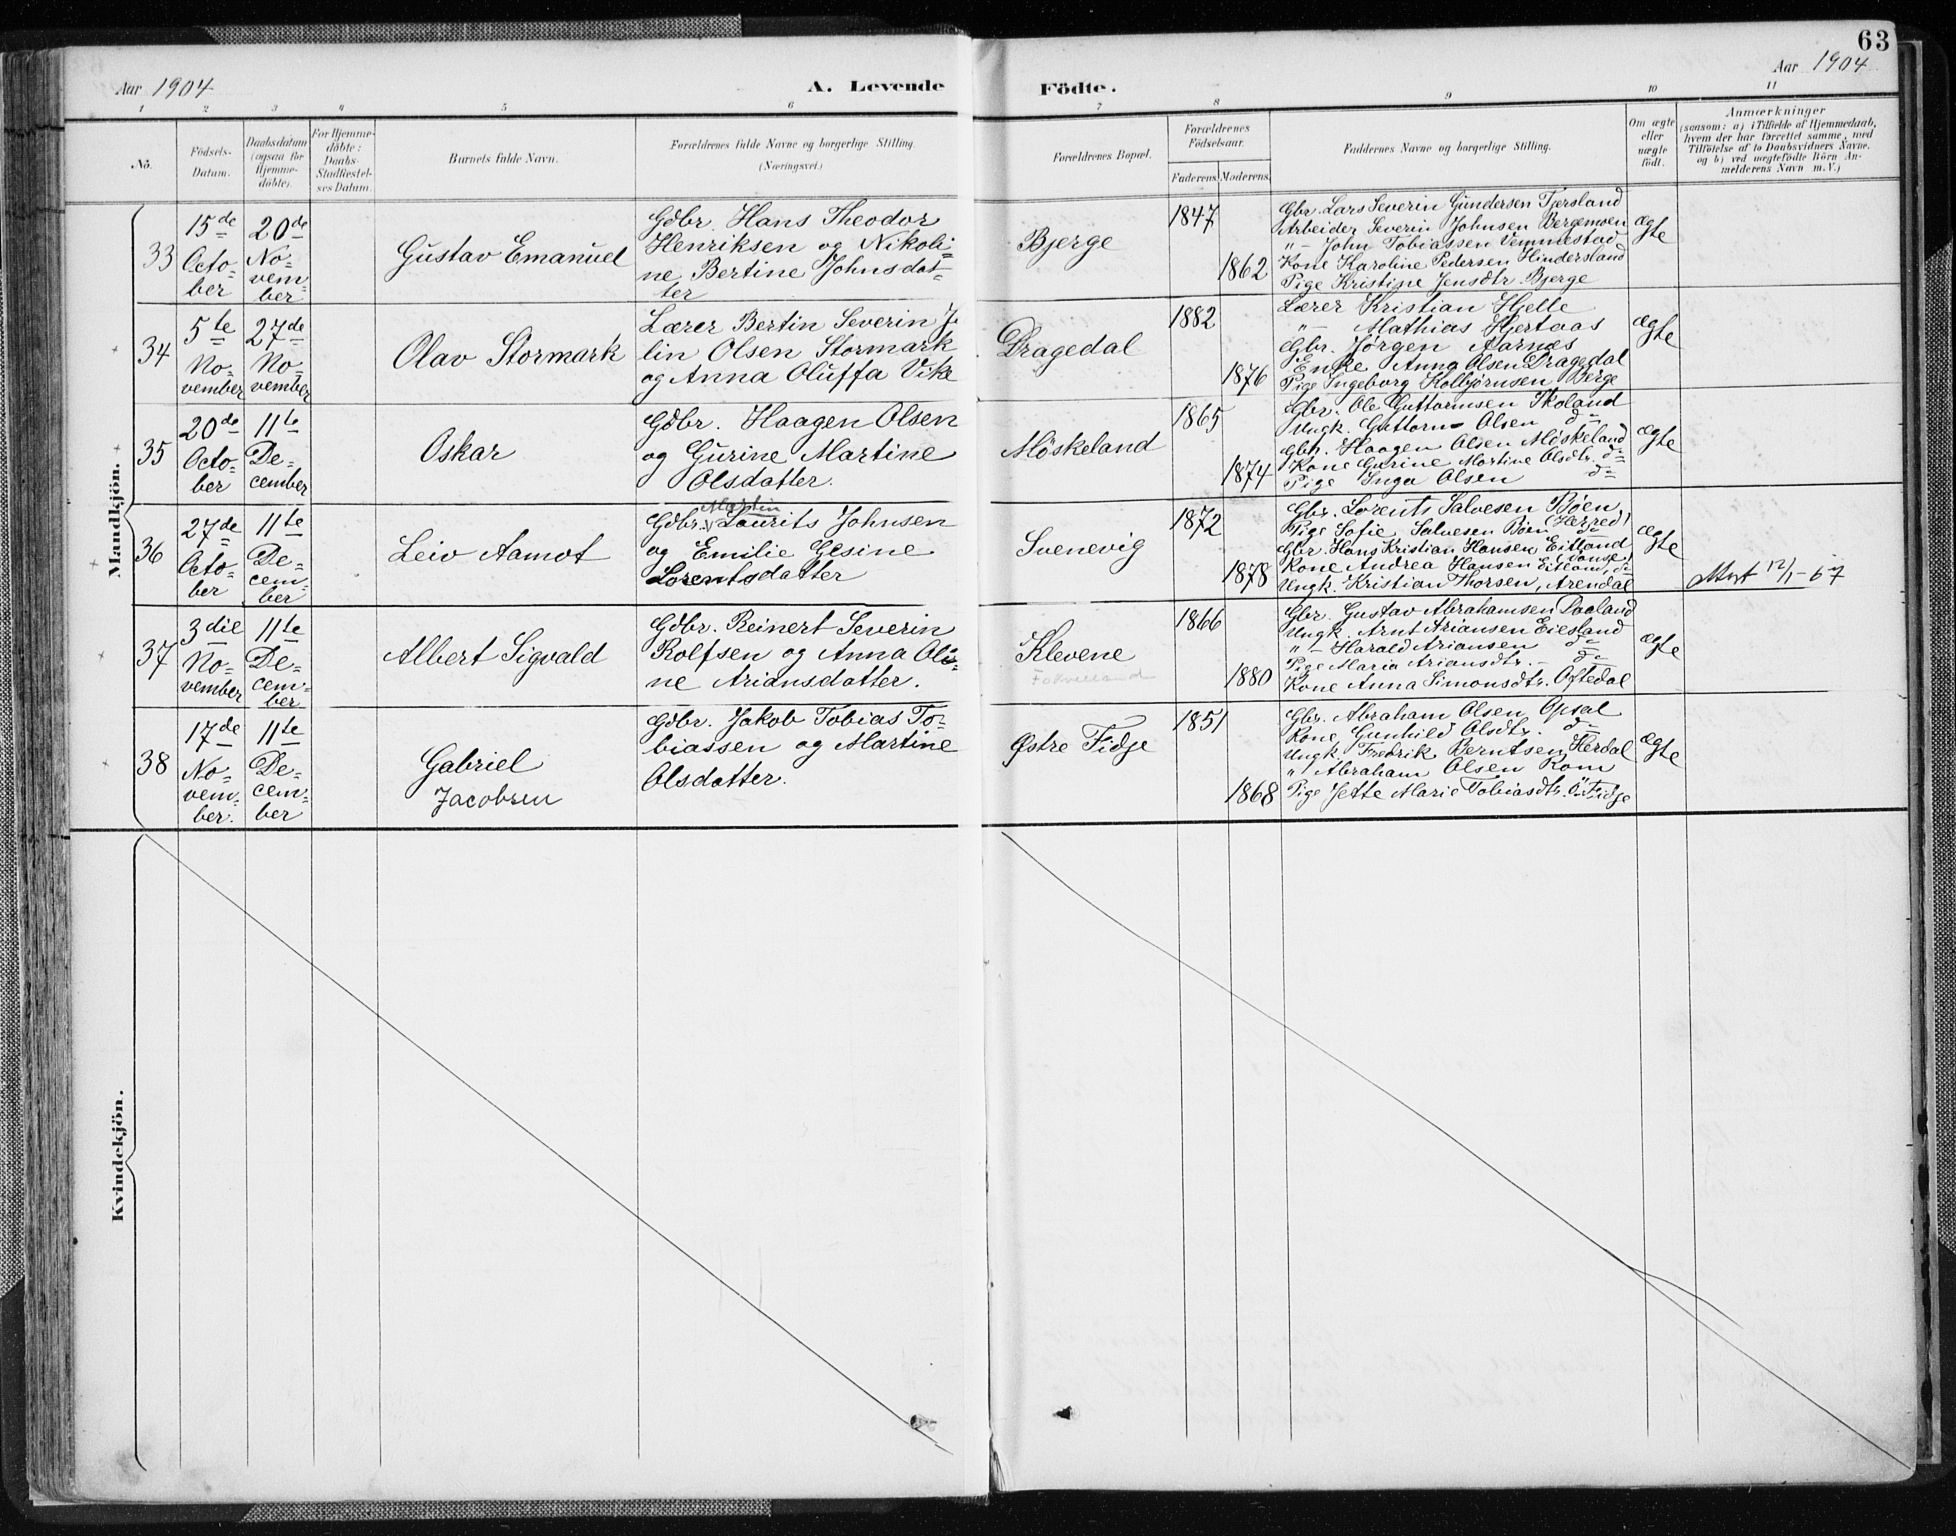 63
Aar 1904
A. Levende
Födte.
Aar 1904
1
2
3
4
5
6
7
8
9
10
11
No.
Födsels-
Datum.
Daabsdatum
(ogsaa for
Hjemme-
döbte).
For Hjemme-
döbte:
Daabs-
Stadfæstel-
ses Datum.
Barnets fulde Navn.
Forældrenes fulde Navne og borgerlige Stilling.
(Næringsvei.)
Forældrenes Bopæl.
Forældrenes
Födselsaar.
Faderens.
Moderens.
Faddernes Navne og borgerlige Stilling.
Om ægte
eller
uægte
födt.
Anmærkninger
(saasom: a) i Tilfælde af Hjemmedaab,
hvem der har forrettet samme, med
Tilföielse af to Daabsvidners Navne,
og b) ved uægtefödte Börn An-
melderens Navn m. V.)
Mandkjön.
33
15de
Octo-
ber
20de
No-
vem-
ber
Gustav Emanuel
Gdbr. Hans Theodor
Henriksen og Nikoli-
ne Bertine Johnsdat-
ter
Bjerge
1847
1862
Gbr. Lars Severin Gundersen Tjersland
Arbeider Severin Johnsen Bergemoen
" - John Tobiassen Vemmestad
Kone Karoline Pedersen Hindersland
Pige Kristine Jensdtr. Bjerge
ægte
34
5te
No-
vember
27de
No-
vember
Olav Stormark
Lærer Bertin Severin
lin Olsen Stormark
og Anna Oluffa Vike
Dragedal
1882
1876
Lærer Kristian Hjelle
" - Mathias Hjertaas
Gbr. Jørgen Aarnes
Enke Anna Olsen Dragedal
Pige Ingeborg Kolbjørnsen Berge
ægte
35
20de
Octo-
ber
11te
De-
cember
Oskar
Gdbr. Haagen Olsen
og Gurine Martine
Olsdatter.
Möskeland
1865
1874
Gbr. Ole Guttormsen Skoland
Ungk. Guttorm Olsen do
Gbr. Haagen Olsen Möskeland
Kone Gurine Martine Olsdtr. do
Pige Inga Olsen do
ægte
36
27de
Octo-
ber
11te
De-
cem-
ber
Leiv Aamot
Martin
Gdbr. Laurits Johnsen
og Emilie Gesine
Lorentsdatter
Svenevig
1872
1878
Gbr. Lorents Salvesen Bøen
Pige Sofie Salvesen Bøen (Herred)
Gbr. Hans Kristian Hansen Eitland
Kone Andrea Hansen Eitland
Ungk. Kristian Thorsen, Arendal
ægte
Mort 12/1-67
37
3die
No-
vember
11te
De-
cem-
ber
Albert Sigvald
Gdbr. Reinert Severin
Rolfsen og Anna Oli-
ne Ariansdatter.
Klevene
1866
1880
Gbr. Gustav Abrahamsen Daaland
Ungk. Arnt Ariansen Eiesland
" - Harald Ariansen do
Pige Maria Ariansdtr. - do
Kone Anna Simonsdtr. Oftedal
ægte
38
17de
No-
vem-
ber.
11te
De-
cem-
ber
Gabriel
Jacobsen
Gdbr. Jakob Tobias To-
biassen og Martine
Olsdatter.
Østre Fidje
1851
1868
Gbr. Abraham Olsen Opsal
Kone Gunhild Olsdtr. do
Ungk. Fredrik Berntsen Herdal
" Abraham Olsen Rom
Pige Jette Marie Tobiasdtr. Ö. Fidje
ægte
Kvindekjön.